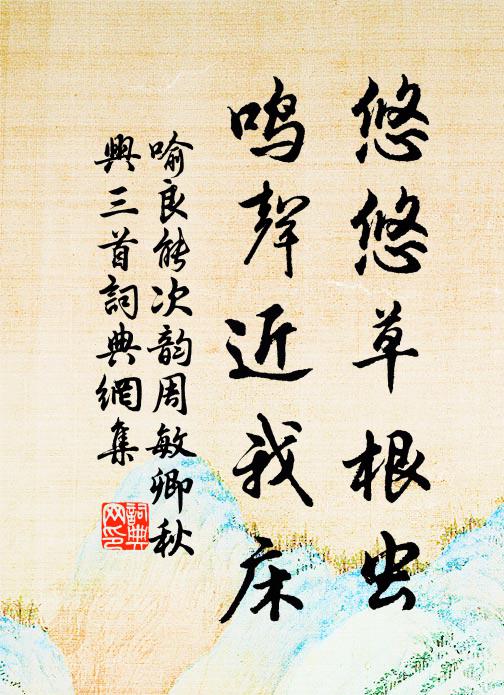 悠悠草根虫
鸣聲近我床
喻良能次韵周敏卿秋
興三首詞典網集
詞典
网印